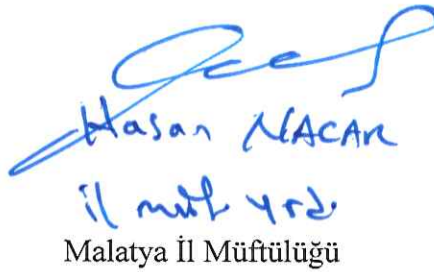 Hasan NACAR
il müf yrd
Malatya İl Müftülüğü